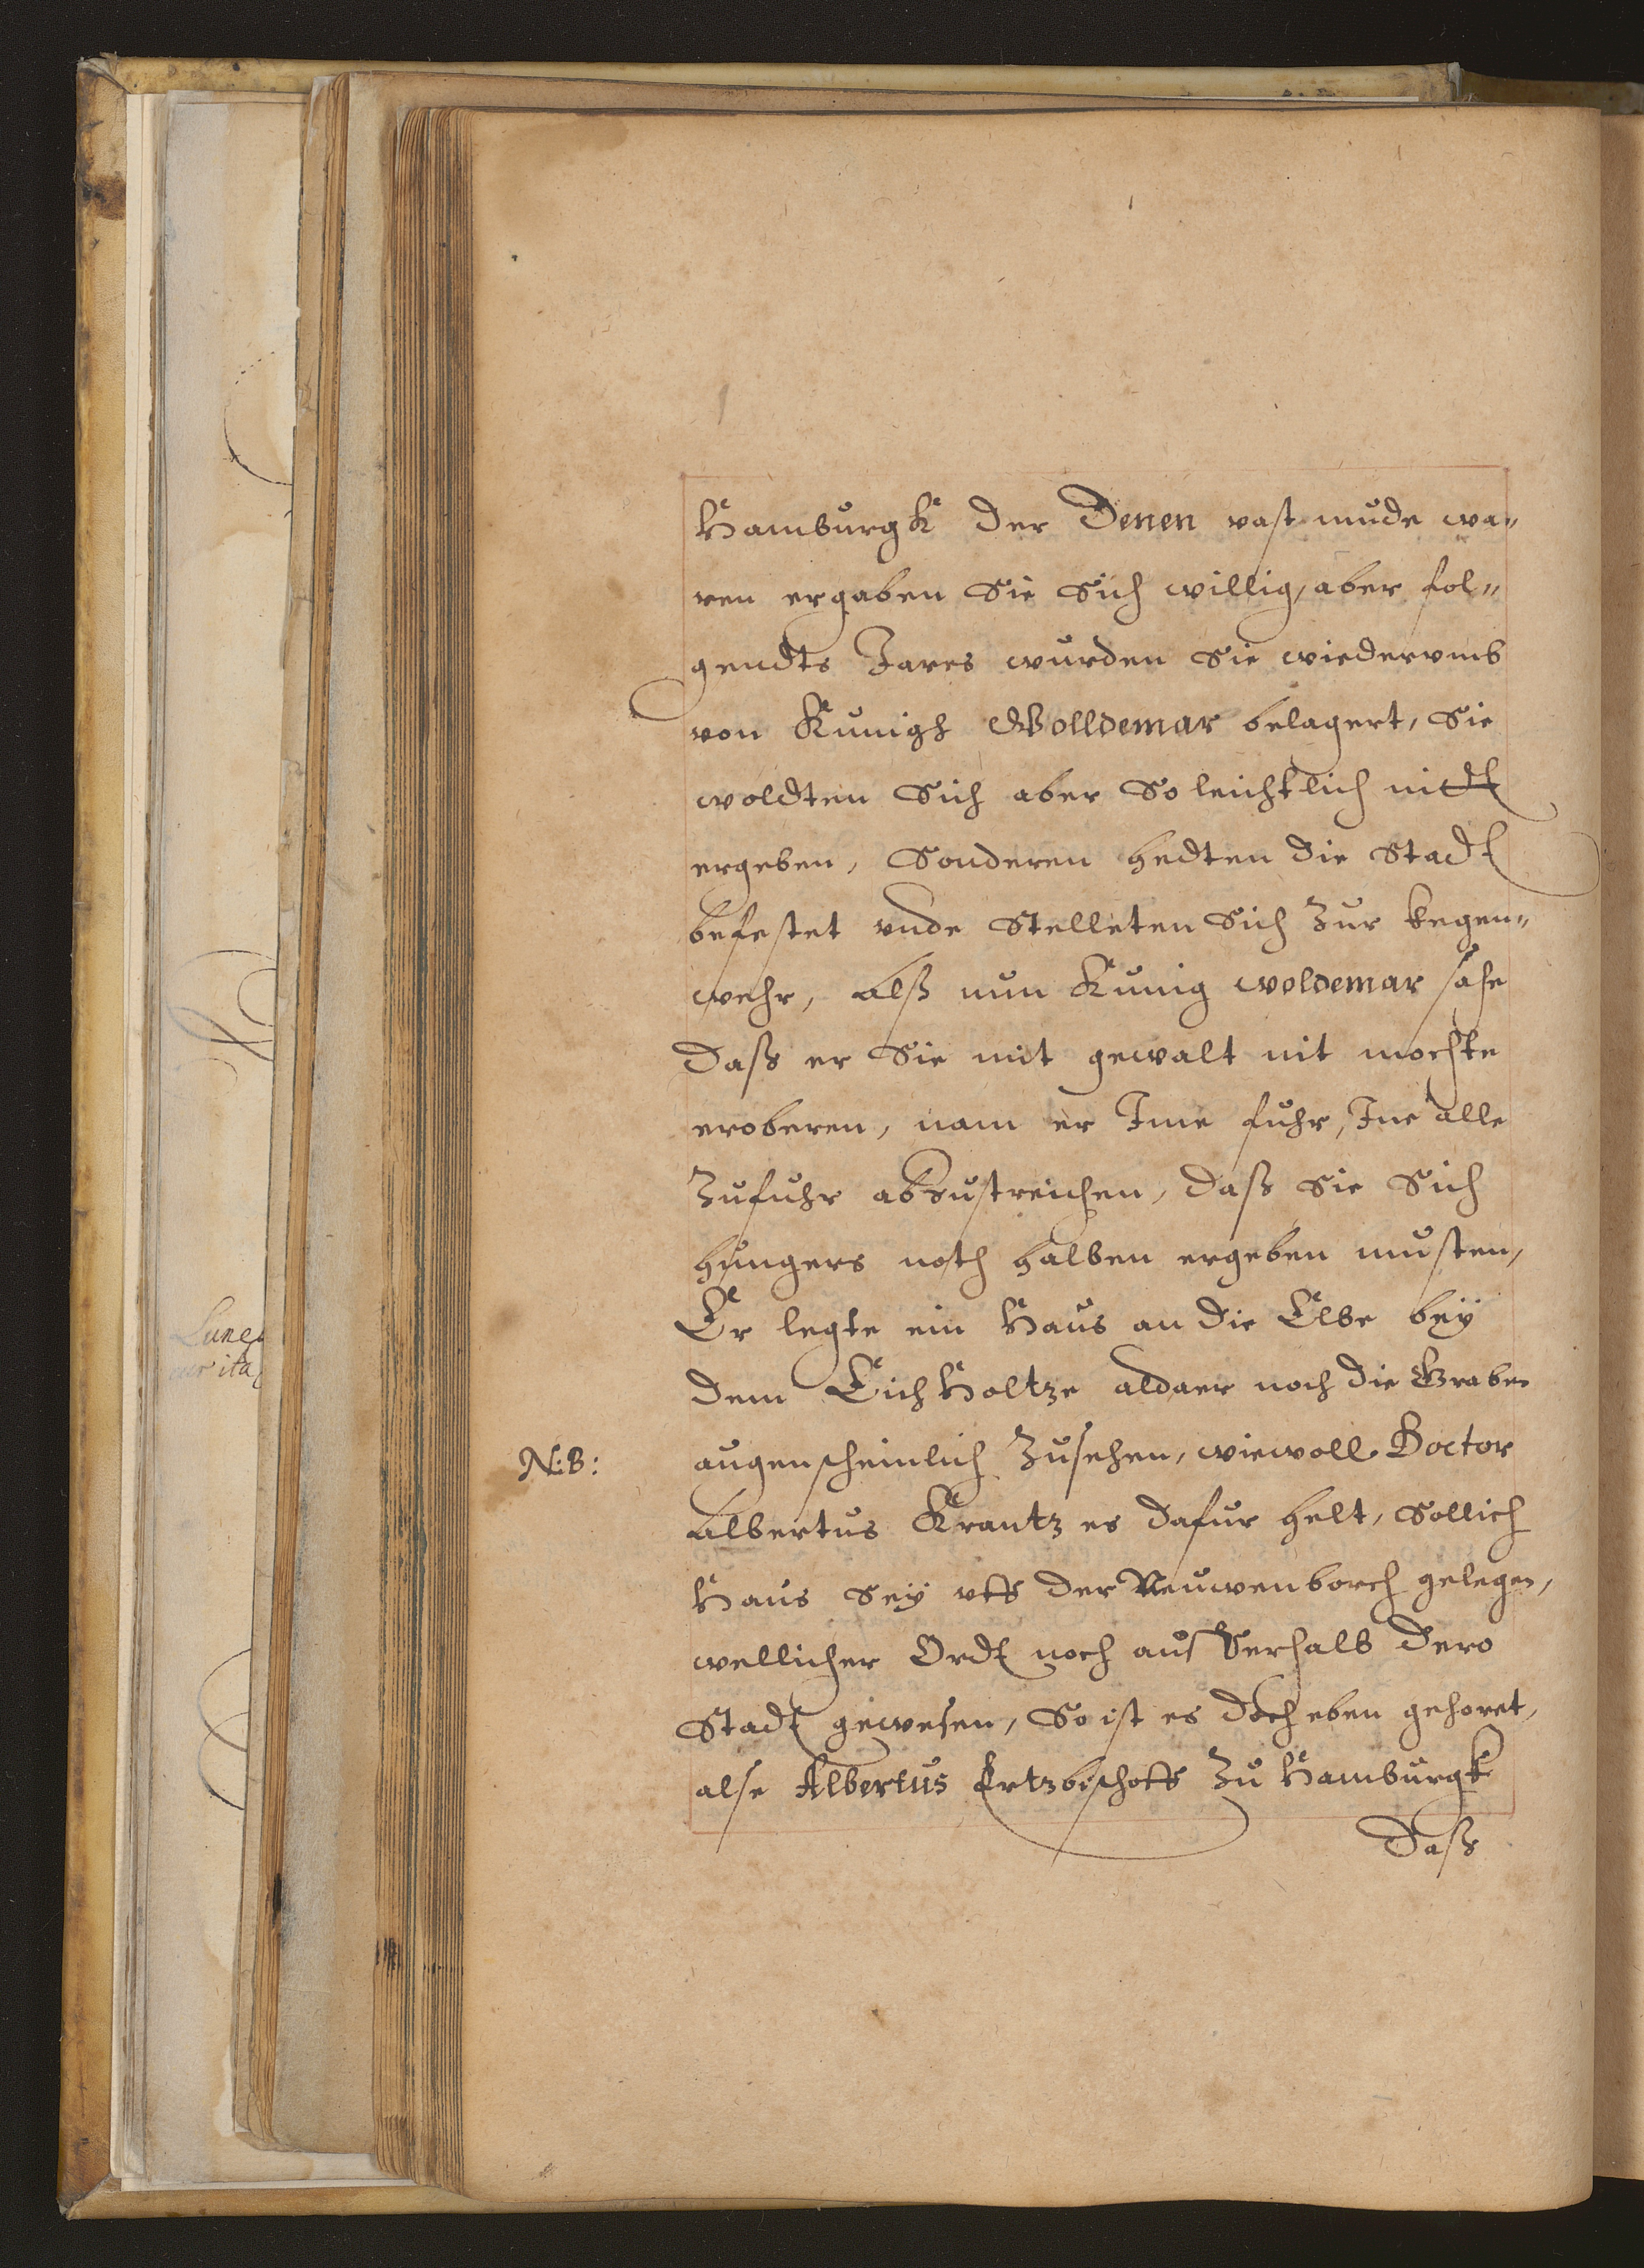 Hamburgk der Denen vast mude wa„
ren ergaben Sie Sich willig, aber fol„
gendts Jares wurden Sie wiedervmb
von Kunigh Wolldemar belagert, Sie
woldten Sich aber So leichtlich nitt
ergeben, Sonderen hedten die Stadt
befestet vnde Stelleten Sich Zur kegen„
wehr, Alß nun Kunig woldemar sahe
Daß er Sie mit gewalt nit mochte
eroberen, nam er Jme fuhr, Jne alle
Zufuhr abZustreichen, daß Sie Sich
hungers noth halben ergeben musten,
Er legte ein Haus an die Elbe beÿ
dem EichHoltze aldaer noch die Graben
N:B:
augenscheinlich Zusehen, wiewoll Doctor
Albertus Krantz es dafur helt, Sollich
Haus Seÿ vff der Neuwenborch gelegen,
wellicher Ordt noch ausserhalb dero
Stadt gewesen, So ist es doch eben gehoret,
alse Albertus Ertzbischoff Zu Hamburgk
Daß